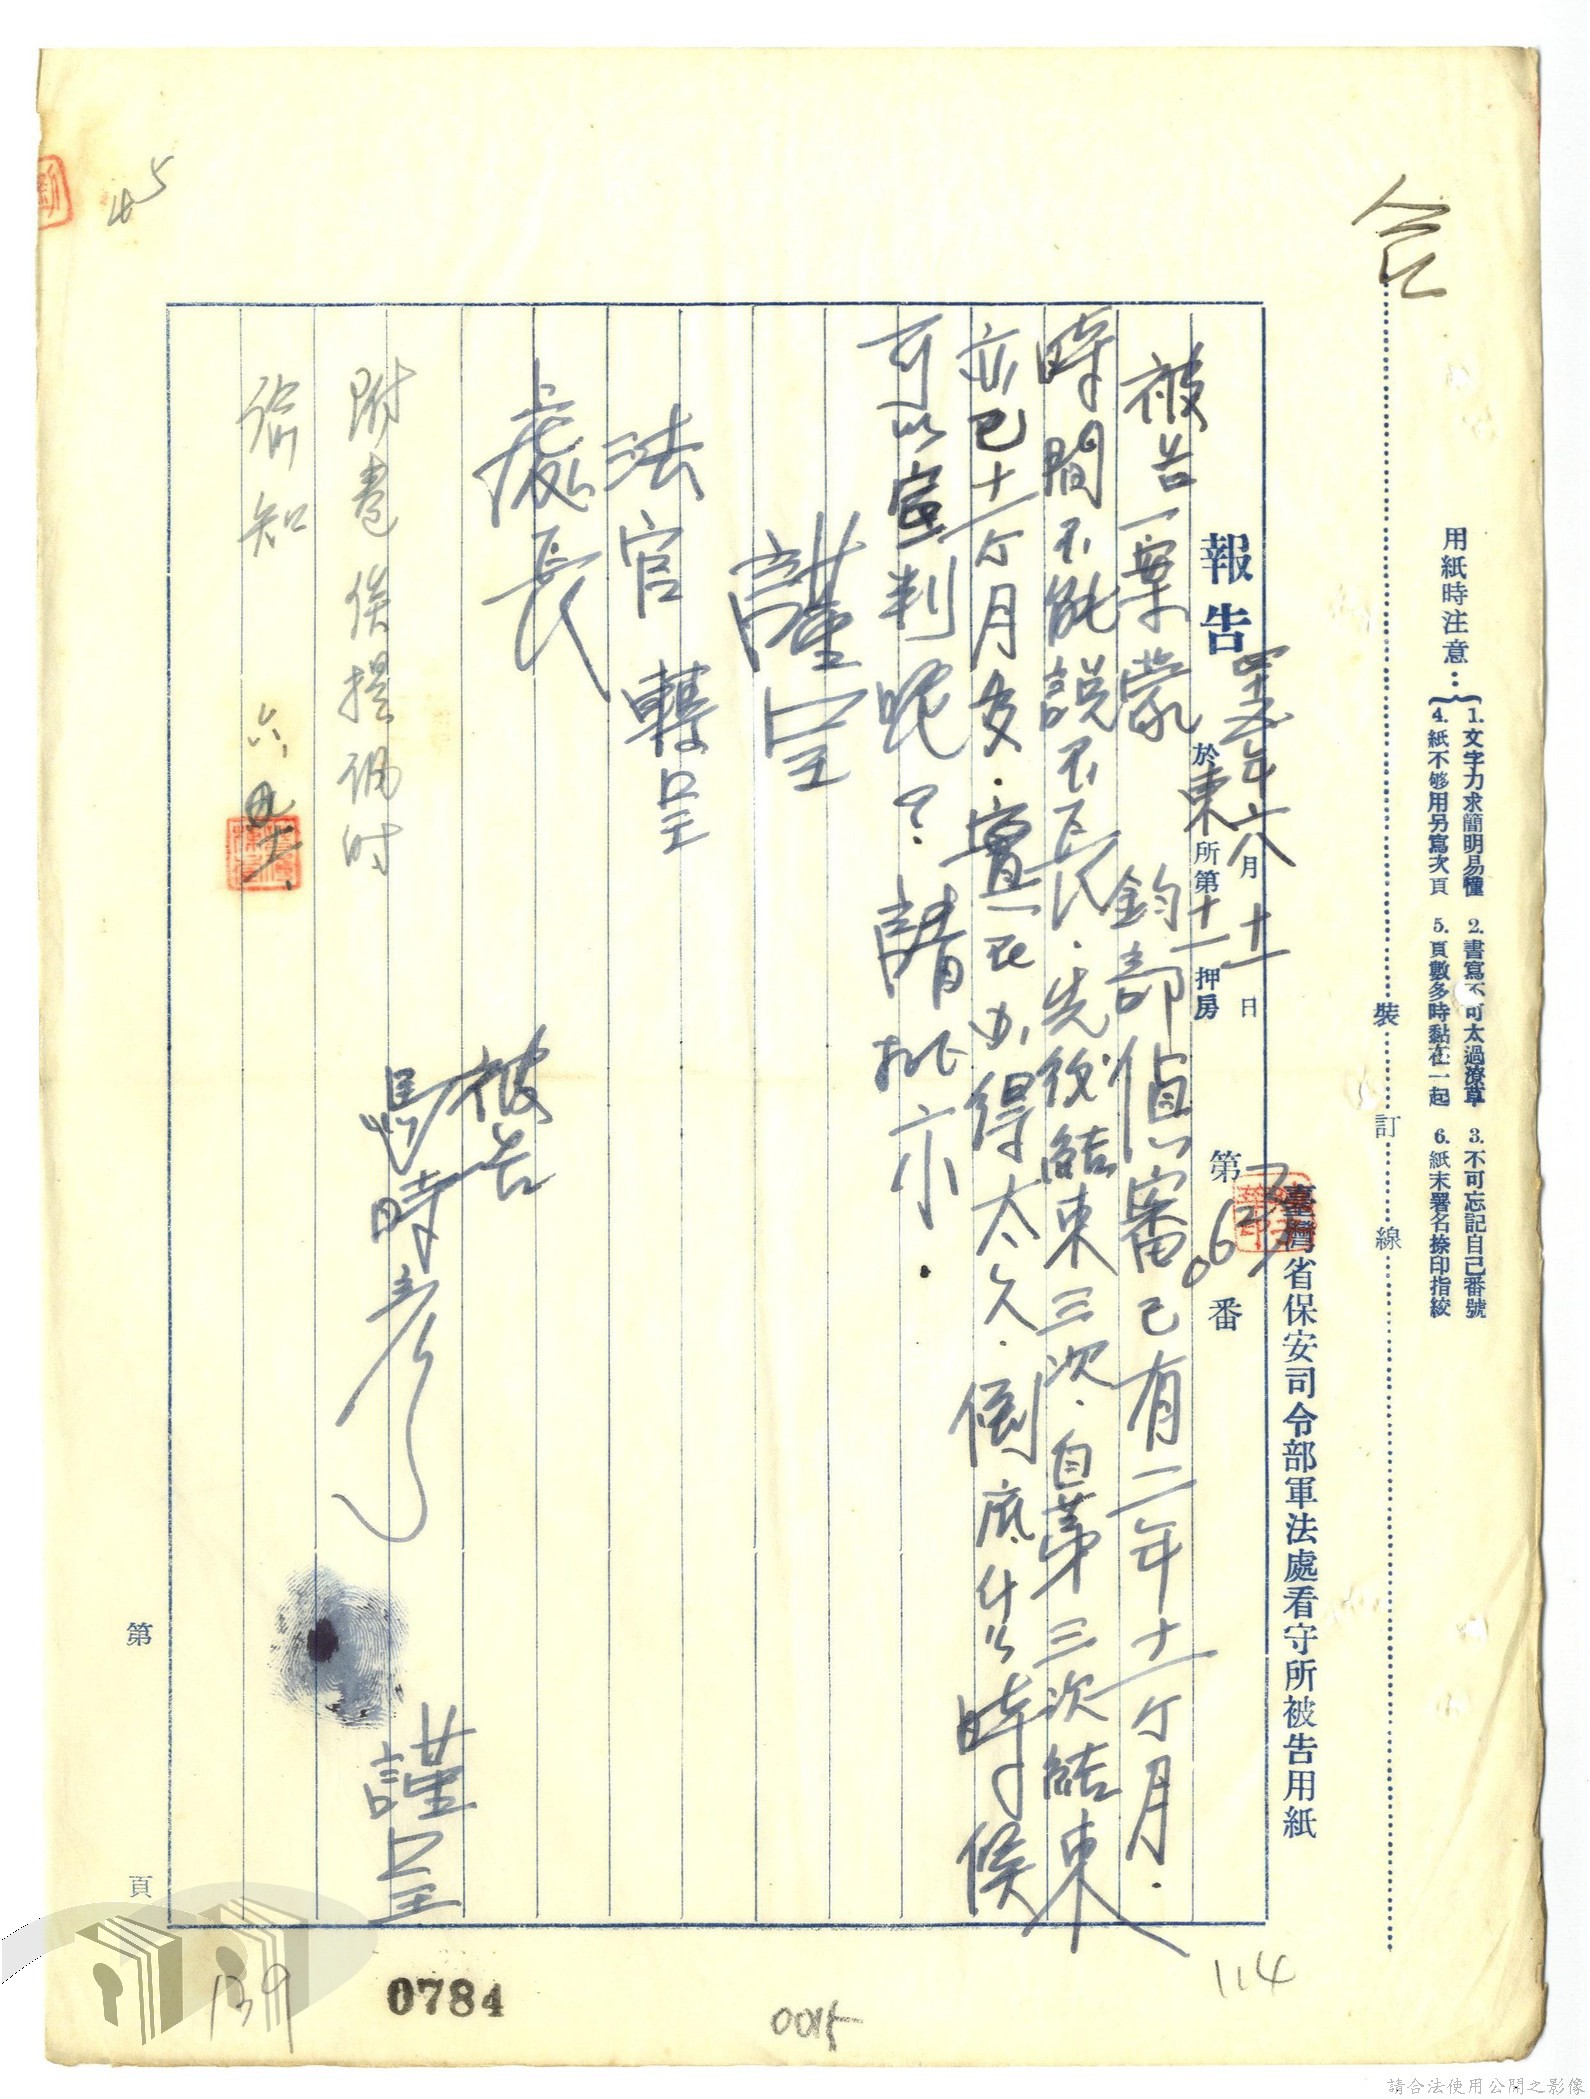 用紙時注意：
1.文字力求簡明易懂 2.書寫不可太過潦草 3.不可忘記自己番號
4.紙不够用另寫次頁 5.頁數多時黏在一起 6.紙末署名捺印指紋
裝 訂 線
臺灣省保安司令部軍法處看守所被告用紙
報告 年六月十一日
於東所第十一押房
第 063 番
被告一案蒙 鈞部偵審已有二年十一个月．
時間不能説不長．先後結束三次．自第三次結束
亦已十一个月多．實在办得太久．倒底什么時候
可以宣判呢？請批示．
謹呈
法官轉呈
處長
被告
馮時彥
謹呈
附卷俟提訊时
諭知 六
第 頁
45
139
0784
0015
114
請合法使用公開之影像